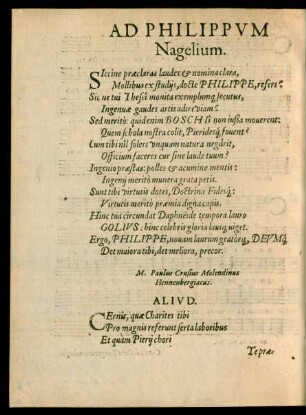 AD PHILIPPVM
Nagelium.
SIccine præclaras laudes & nomina clara,
Mollibus ex studijs, docte PHILIPPE, refers?
Sic ne tui Thesei monita exemplumq; secutus,
Ingenuæ gaudes artis adire viam?
Sed meritò: quid enim BOSCHI non iussa mouerent:
Quem schola nostra colit, Pieridesq; fouent?
Cum tibi nil soleis vnquam natura negârit,
Officium faceres cur sine laude tuum?
Ingenio præstas: polles & acumine mentis:
Ingenij meritò munera grata petis.
Sunt tibi virtutis dotes, Doctrina Fidesq;:
Virtutis meritò præmia digna capis.
Hinc tua circundat Daphneide tempora lauro
GOLIVS: hinc celebris gloria lausq; viget.
Ergo, PHILIPPE, nouam laurum grator, DEVMq;
Det maiora tibi, det meliora, precor.
M. Paulus Crusius Molendinus
Hennenbergiacus.
ALIVD.
CErnis, quæ Charites tibi
Pro magnis referunt serta laboribus
Et quàm Pierij chori
Te præ-